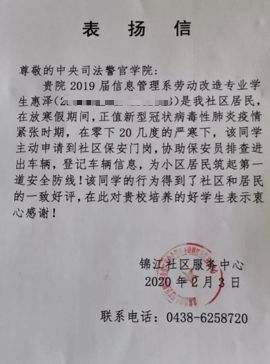 表扬信
尊敬的中央司法警官学院：
贵院 2019 届信息管理系劳动改造专业学
生惠泽(2 )是我社区居民，
在放寒假期间，正值新型冠状病毒性肺炎疫情
紧张时期，在零下 20 几度的严寒下，该同学
主动申请到社区保安门岗，协助保安员排查进
出车辆，登记车辆信息，为小区居民筑起第一
道安全防线！该同学的行为得到了社区和居民
的一致好评，在此对贵校培养的好学生表示衷
心感谢！
锦江社区服务中心
2020 年 2 月 3 日
联系电话：0438-6258720